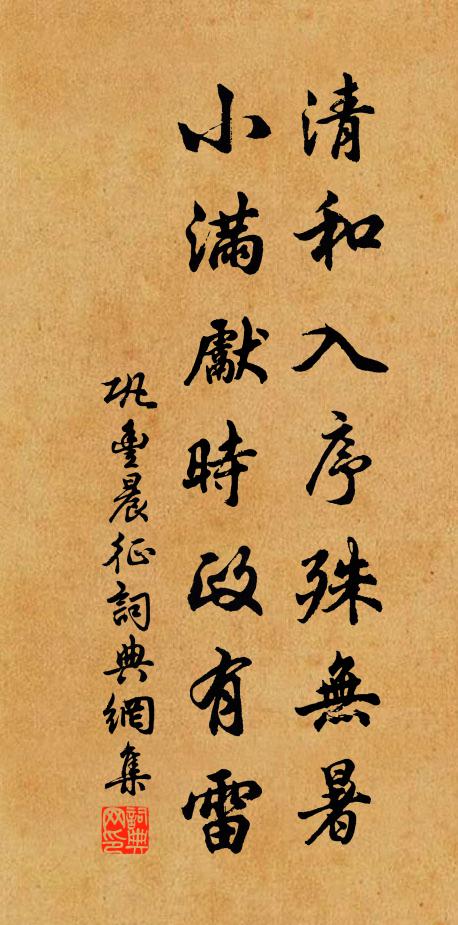 清和入序殊無暑
小滿獻時政有雷
巩豐晨征詞典網集
詞典网印